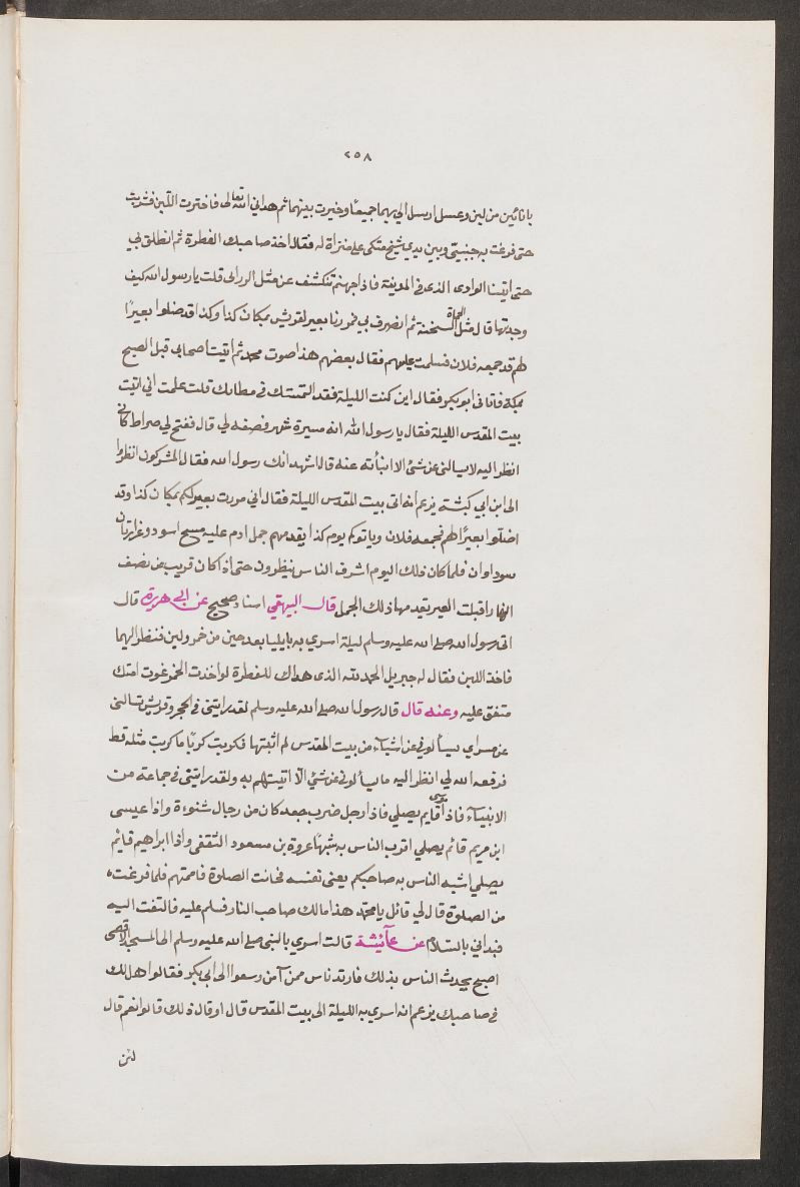 ٢٥٨
بانائين من لبن وعسل ارسل الي بهما جميعا وخيرت بينهما ثم هداني الله تعالى فاخترت اللبن فشربت
حتى فرغت به جبيني وبين يدي شيخ متكى على منزاة له فقال اخذ صاحبك الفطرة ثم انطلق بي
حتى اتينا الوادى الذى فى المدينة فاذا جهنم تنكشف عن مثل الورابى قلت يارسول الله كيف
وجدتها قال مثل الحماة السخنة ثم انصرف بي فمررنا بعير لقريش بمكان كذا وكذا قد ضلوا بعيرًا
لهم قد جمعه فلان فسلمت عليهم فقال بعضهم هذا صوت محمد ثم اتيت اصحابي قبل الصبح
بمكة فاتانى ابو بكر فقال اين كنت الليلة فقد التمستك في مظانك قلت علمت اني اتيت
بيت المقدس الليلة فقال يا رسول الله انه مسيرة شهر فصفه لي قال ففتح لي صراط كاني
انظر اليه لايسالنى عن شئ الا انبأته عنه قال اشهد انك رسول الله فقال المشركون انظروا
الى ابن ابي كبشة يزعم أنه اتى بيت المقدس الليلة فقال اني مررت بعير لكم بمكان كذا وقد
اضلوا بعيرًا لهم فجمعه فلان وياتوكم يوم كذا يقدمهم جمل ادم عليه مسح اسود وغرارتان
سوداوان فلما كان ذلك اليوم اشرف الناس ينظرون حتى اذا كان قريب من نصف
النهار اقبلت العير يقدمها ذلك الجمل قال البيهقي اسناد صحيح عن ابي هريرة قال
اتى رسول الله صلى الله عليه وسلم ليلة اسري به بايليا بقدحين من خمر ولبن فنظر اليهما
فاخذ اللبن فقال له جبريل الحمد لله الذى هداك للفطرة لو اخذت الخمر غوت امتك
متفق عليه وعنه قال قال رسول الله صلى الله عليه وسلم لقد رايتنى في الحجر وقريش تسالنى
عن مسراي يسألوني عن اشياء من بيت المقدس لم اثبتها فكربت كربًا ما كربت مثله قط
فرفعه الله لي انظر اليه ما يسألونى عن شئ الا اتيتهم به ولقد رايتنى فى جماعة من
الانبياء فاذا موسى قايم يصلي فاذا رجل ضرب جعد كان من رجال شنوءة واذا عيسى
ابن مريم قائم يصلي اقرب الناس به شبهًا عروة بن مسعود الثقفى واذا ابراهيم قايم
يصلي اشبه الناس به صاحبكم يعنى نفسه فحانت الصلوة فاممتهم فلما فرغت
من الصلوة قال لي قائل يا محمد هذا مالك صاحب النار فسلم عليه فالتفت اليه
فبداني بالسلام عن عائشة قالت اسري بالنبي صلى الله عليه وسلم الى المسجد الاقصى
اصبح يحدث الناس بذلك فارتد ناس ممن آمن وسعوا الى ابي بكر فقالوا هل لك
في صاحبك يزعم انه اسري به الليلة الى بيت المقدس قال اوقال ذلك قالوا نعم قال
لئن